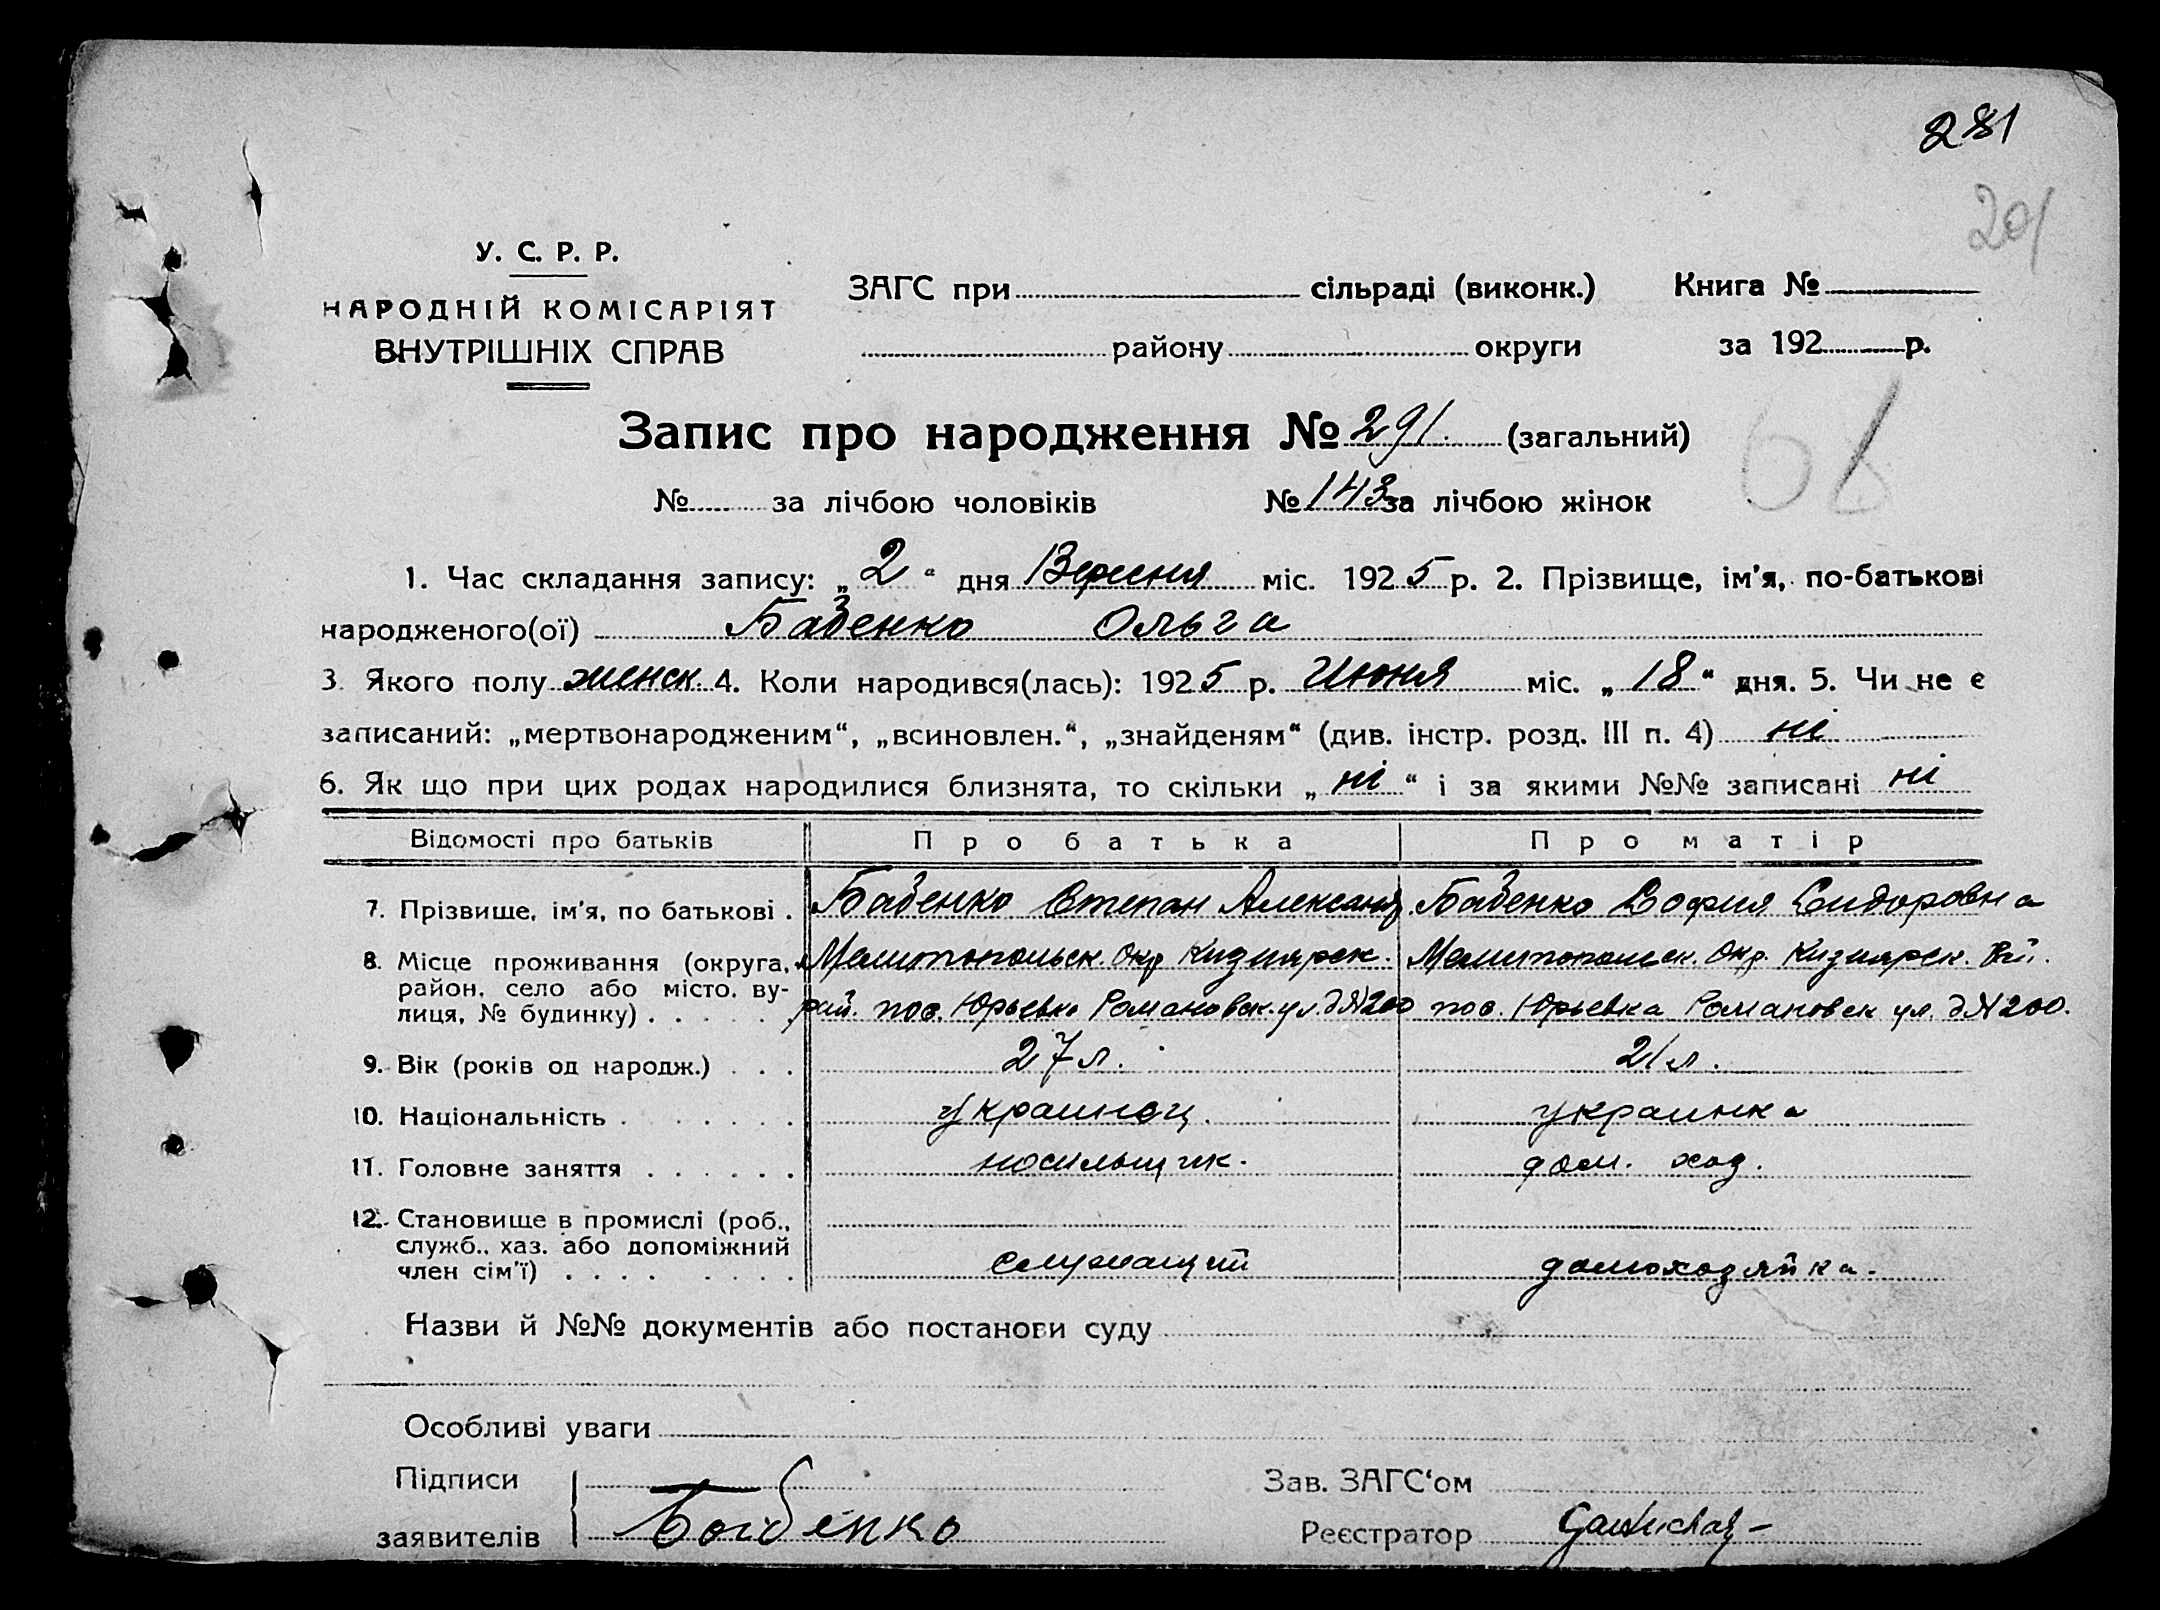 281
201
У. С. Р. Р.
НАРОДНІЙ КОМІСАРІЯТ
ВНУТРІШНІХ СПРАВ
ЗАГС при сільраді (виконк.) Книга №
району округи за 192 р.
Запис про народження № 291 (загальний)
№ за лічбою чоловіків № 143 за лічбою жінок
1. Час складання запису: „2“ дня Вересня міс. 1925 р. 2. Прізвище, ім'я, по-батькові
народженого(ої) Бабенко Ольга
3. Якого полу женск 4. Коли народився(лась): 1925 р. Июня міс. „18“ дня. 5. Чи не є
записаний: „мертвонародженим“, „всиновлен.“, „знайденям“ (див. інстр. розд. III п. 4) ні
6. Як що при цих родах народилися близнята, то скільки „ні“ і за якими №№ записані ні
Відомості про батьків Про батька Про матір
7. Прізвище, ім'я, по батькові . Бабенко Степан Александ. Бабенко София Сидоровна
8. Місце проживання (округа, район, село або місто, вулиця, № будинку) . . . . . Мелитопольск. Окр Кизиярск. рай. пос. Юрьевка Романовск. ул. д №200 Мелитопольск. Окр. Кизиярск. Рай. пос. Юрьевка Романовск ул. д № 200.
9. Вік (років од народж.) . . . 27 л. 21 л.
10. Національність . . . . . . украинец. украинка
11. Головне заняття . . . . . . носильщик. дом. хоз.
12. Становище в промислі (роб., служб., хаз. або допоміжний член сім'ї) . . . . . . . . служащий домохозяйка.
Назви й №№ документів або постанови суду
Особливі уваги
Підписи Зав. ЗАГС'ом
заявителів Бабенко Реєстратор